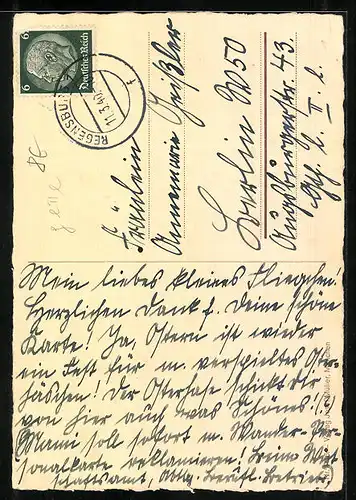 6 Deutsches Reich 6
REGENSBURG
11.3.40
Fräulein
Annemarie Geißler
Berlin W 50
Augsburgerstr. 43.
Gh. l. II. l.
Mein liebes kleines Fliegchen!
Herzlichen Dank f. Deine schöne
Karte! Ja, Ostern ist wieder
ein Fest für m. verspieltes Oster-
häschen! Der Osterhase schickt Dir
von hier auch was Schönes! (.6)
Mami soll sofort m. Wander-Per-
sonalkarte reklamieren! Beim Wirt
schaftsamt, Abtlg. Berufl. Betrieb